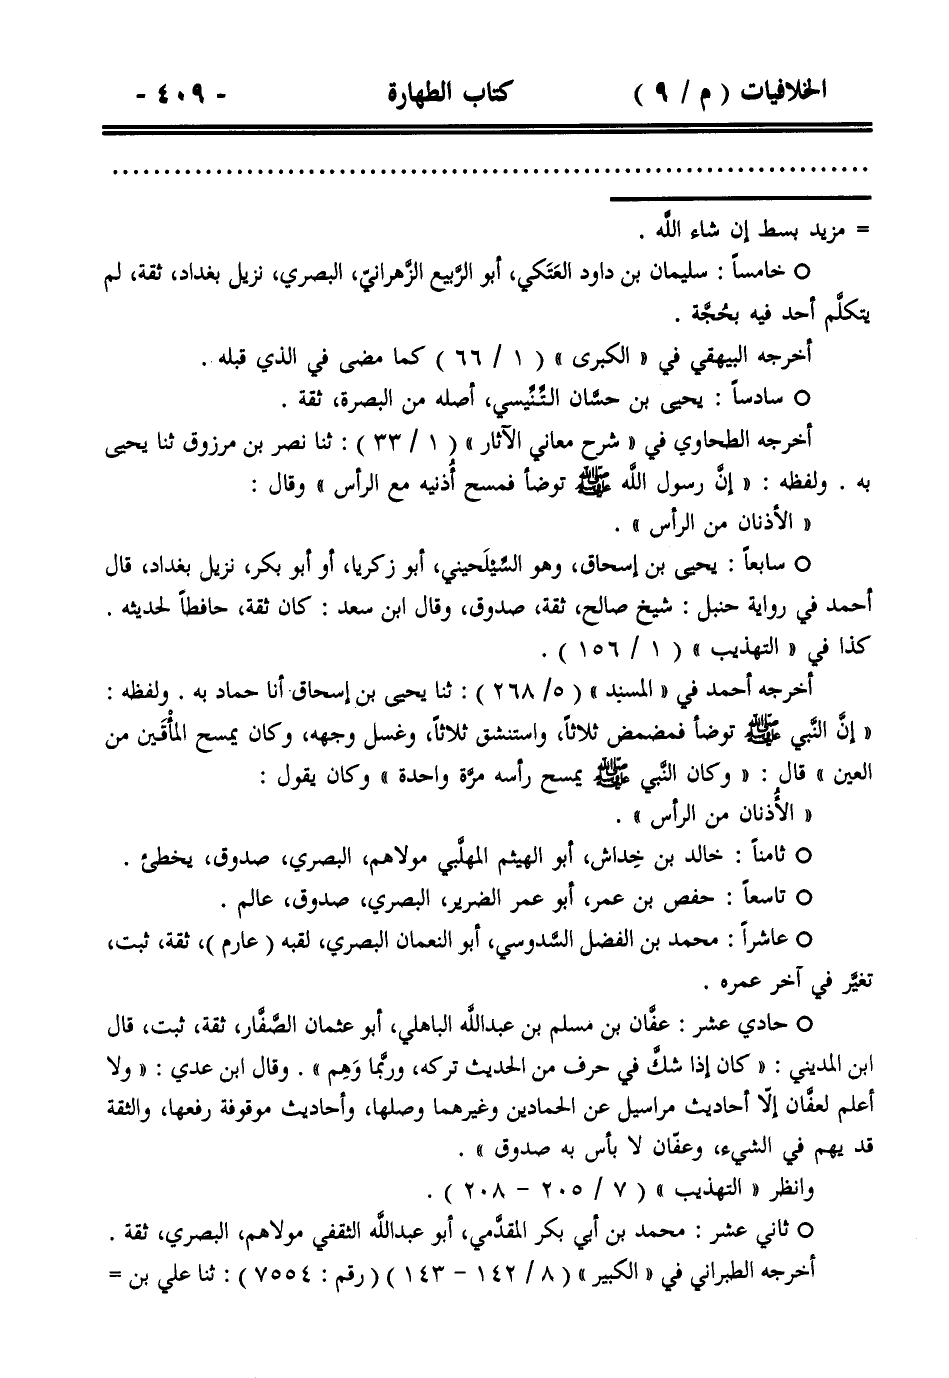 الخلافيات ( م / ٩ ) كتاب الطهارة - ٤٠٩ -
= مزيد بسط إن شاء اللَّه .
○ خامساً : سليمان بن داود العَتَكي، أبو الرَّبيع الزَّهرانيّ، البصري، نزيل بغداد، ثقة، لم
يتكلَّم أحد فيه بحُجَّة .
أخرجه البيهقي في « الكبرى » ( ١ / ٦٦ ) كما مضى في الذي قبله .
○ سادساً : يحيى بن حسَّان التِّنِّيسي، أصله من البصرة، ثقة .
أخرجه الطحاوي في « شرح معاني الآثار » ( ١ / ٣٣ ) : ثنا نصر بن مرزوق ثنا يحيى
به . ولفظه : « إنَّ رسول اللَّه ﷺ توضأ فمسح أُذنيه مع الرأس » وقال :
« الأذنان من الرأس » .
○ سابعاً : يحيى بن إسحاق، وهو السَّيْلَحيني، أبو زكريا، أو أبو بكر، نزيل بغداد، قال
أحمد في رواية حنبل : شيخ صالح، ثقة، صدوق، وقال ابن سعد : كان ثقة، حافطاً لحديثه .
كذا في « التهذيب » ( ١ / ١٥٦ ) .
أخرجه أحمد في « المسند » ( ٥/ ٢٦٨ ) : ثنا يحيى بن إسحاق أنا حماد به . ولفظه :
« إنَّ النَّبي ﷺ توضأ فمضمض ثلاثاً، واستنشق ثلاثاً، وغسل وجهه، وكان يمسح المأْقَين من
العين » قال : « وكان النَّبي ﷺ يمسح رأسه مرَّة واحدة » وكان يقول :
« الأُذنان من الرأس » .
○ ثامناً : خالد بن خِداش، أبو الهيثم المهلَّبي مولاهم، البصري، صدوق، يخطئ .
○ تاسعاً : حفص بن عمر، أبو عمر الضرير، البصري، صدوق، عالم .
○ عاشراً : محمد بن الفضل السَّدوسي، أبو النعمان البصري، لقبه ( عارم )، ثقة، ثبت،
تغيَّر في آخر عمره .
○ حادي عشر : عفَّان بن مسلم بن عبداللَّه الباهلي، أبو عثمان الصَّفَّار، ثقة، ثبت، قال
ابن المديني : « كان إذا شكَّ في حرف من الحديث تركه، وربَّما وَهِم » . وقال ابن عدي : « ولا
أعلم لعفَّان إلّا أحاديث مراسيل عن الحمادين وغيرهما وصلها، وأحاديث موقوفة رفعها، والثقة
قد يهم في الشيء، وعفّان لا بأس به صدوق » .
وانظر « التهذيب » ( ٧ / ٢٠٥ – ٢٠٨ ) .
○ ثاني عشر : محمد بن أبي بكر المقدَّمي، أبو عبداللَّه الثقفي مولاهم، البصري، ثقة .
أخرجه الطبراني في « الكبير » ( ٨ / ١٤٢ – ١٤٣ ) ( رقم : ٧٥٥٤ ) : ثنا علي بن =